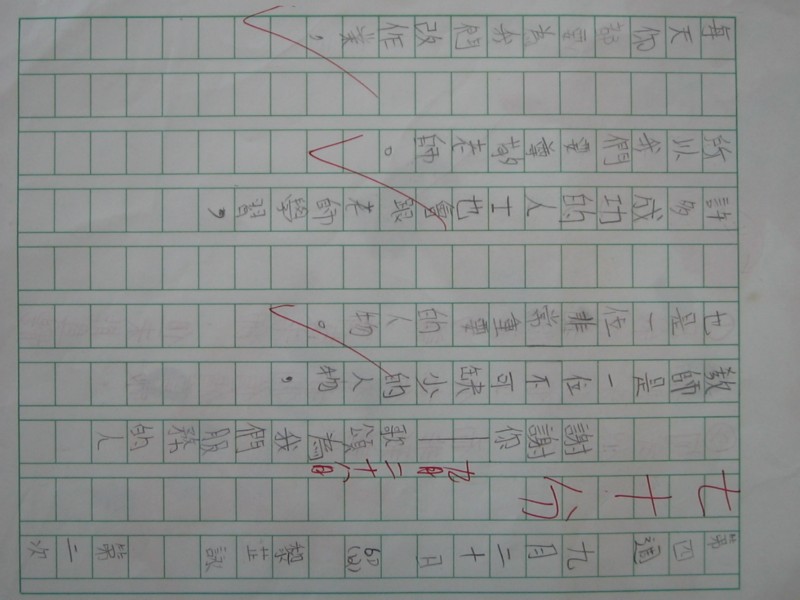 第四週 九月二十日 黎立詠 第二次
七十分 九月二十八日
謝謝你——歌頌為我們服務的人
教師是一位不可缺少的人物，
也是一位非常重要的人物。
成功的人士也會跟老師學習，
以我們要老師。
每天你都要為我們改作業，